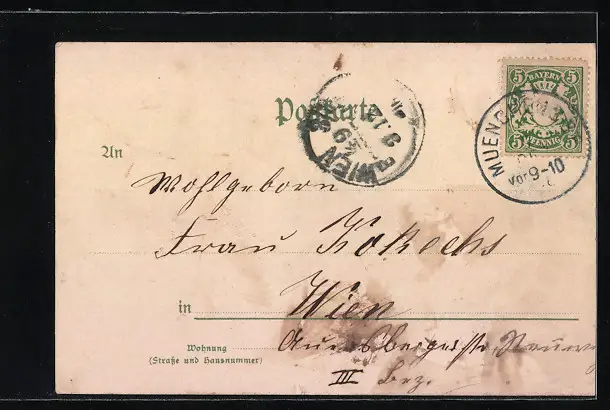 Postkarte
BAYERN
5 5
5 5
PFENNIG
MUENCHEN
Vor 9-10
WIEN
An
Wohlgeborn
Frau Kokechs
in Wien
Wohnung
(Straße und Hausnummer)
III Bez.